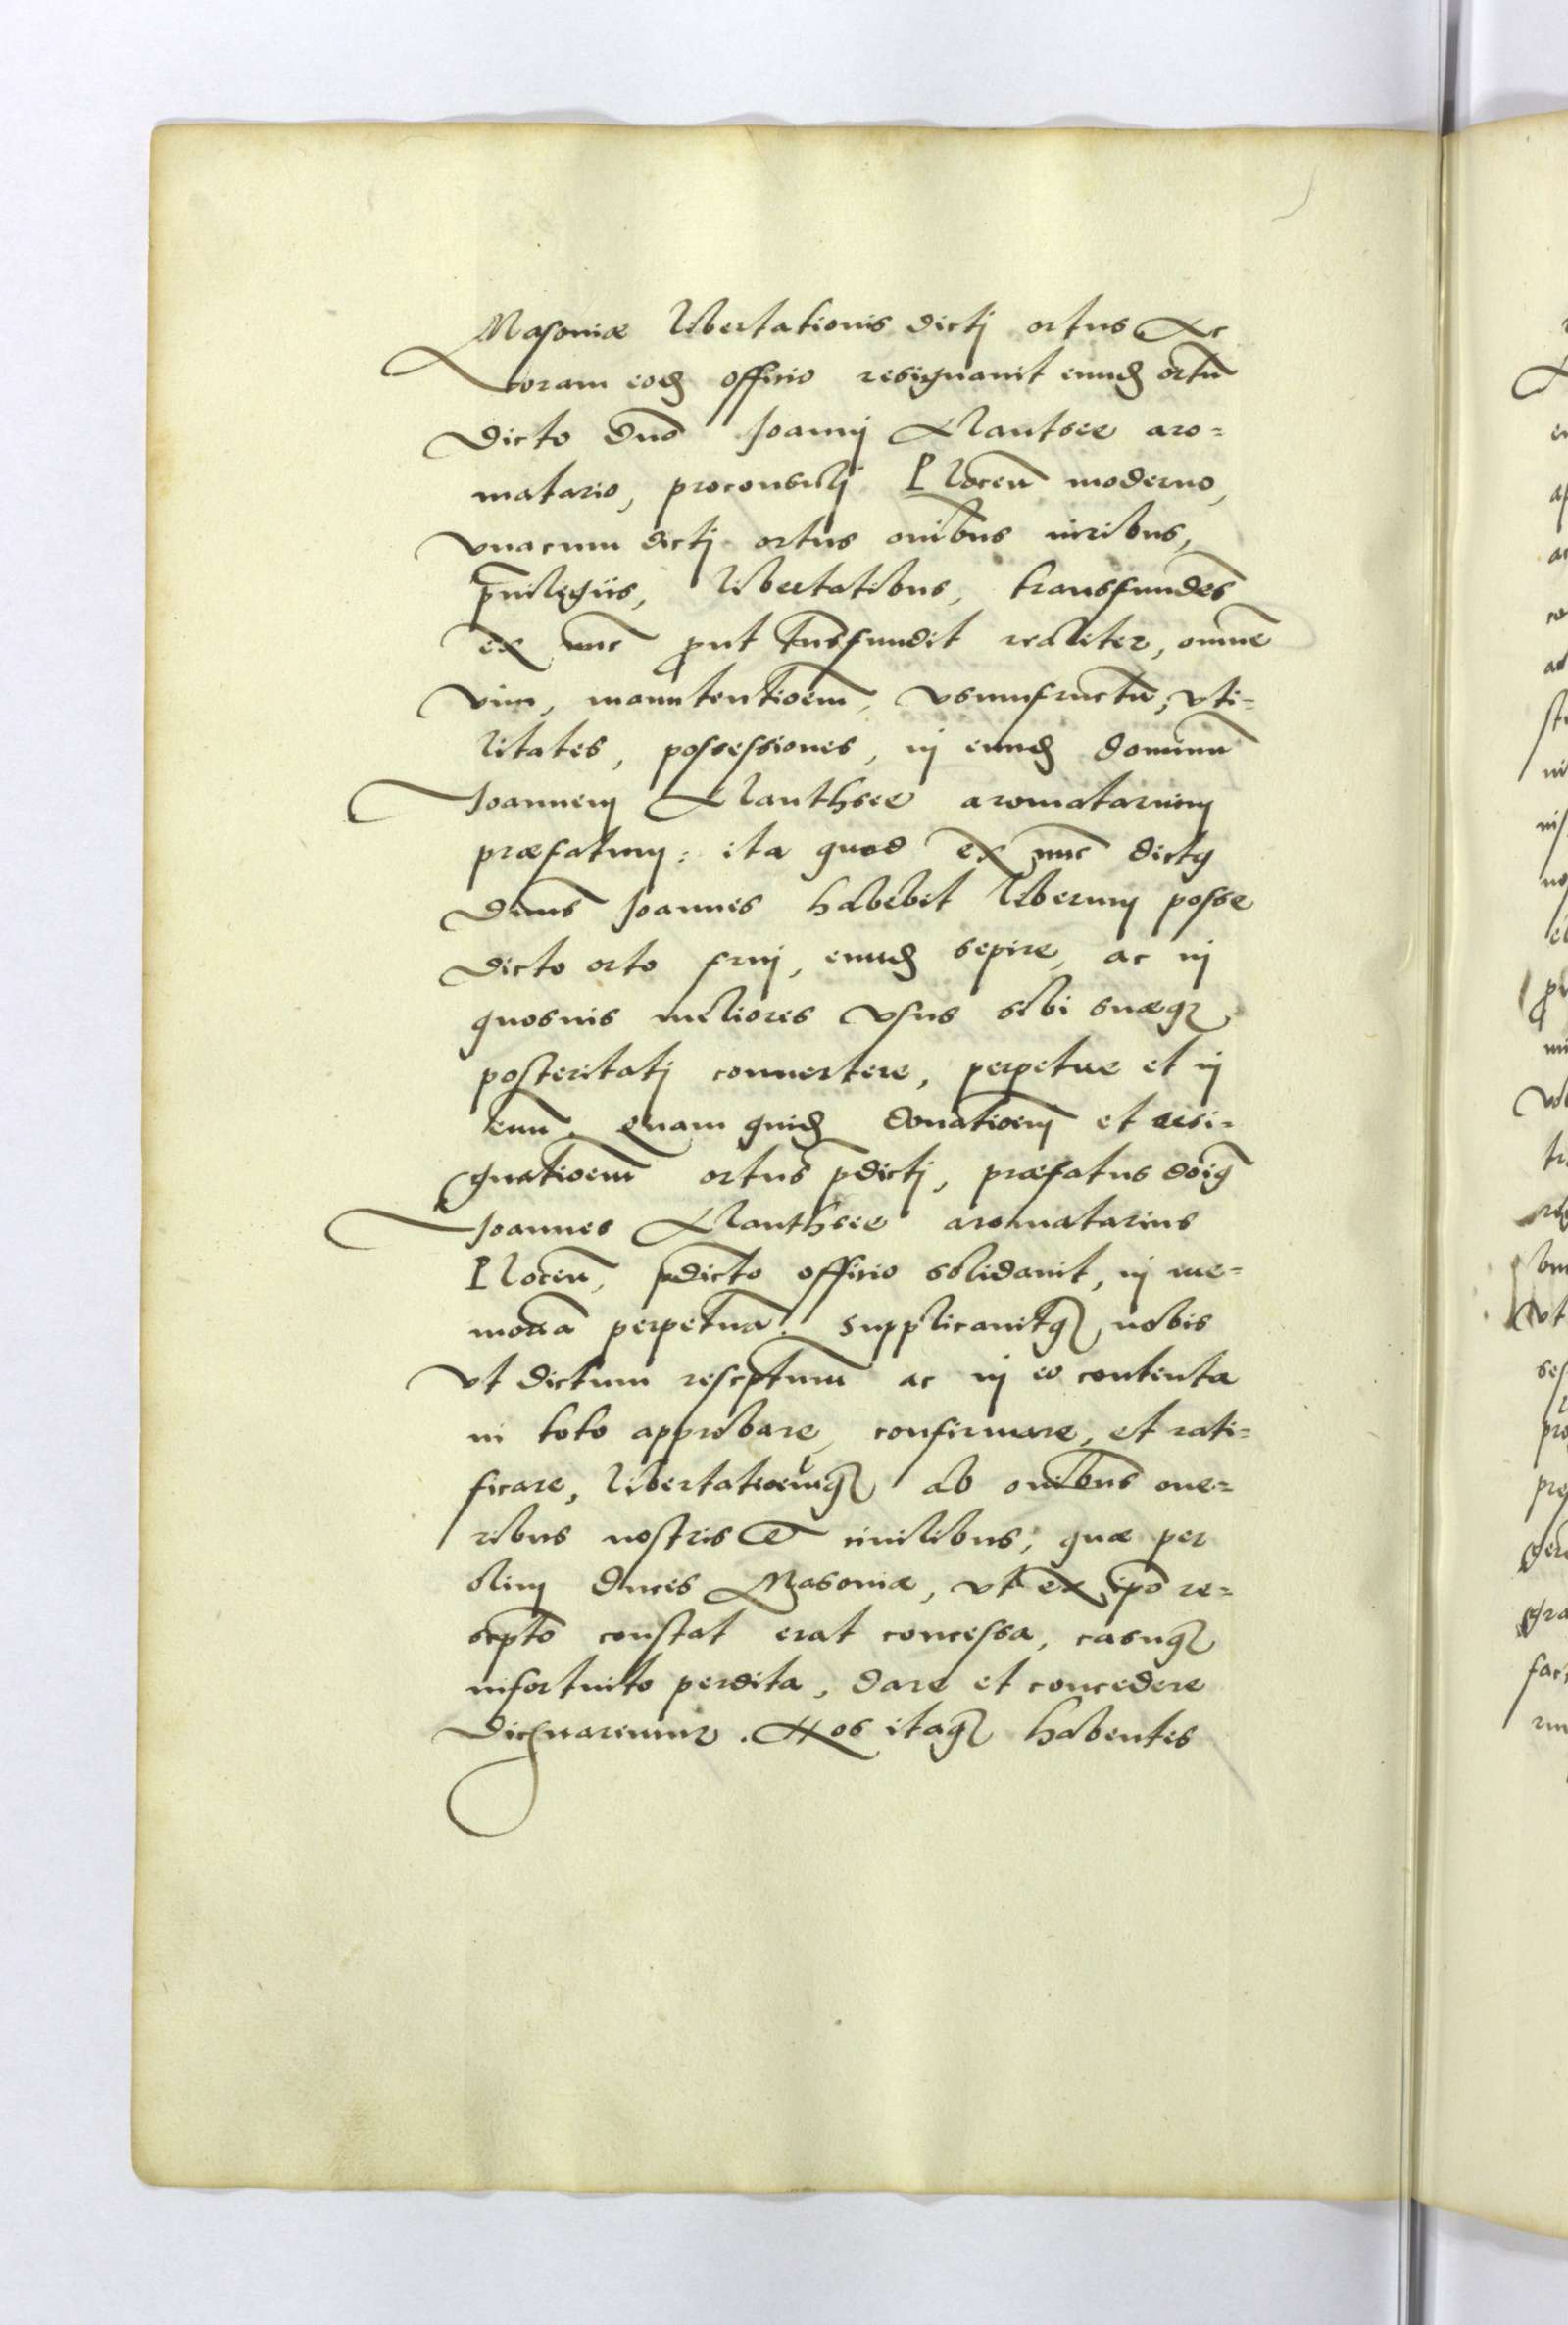 Masoniæ libertationis dictj ortus Ac
coram eodẽ officio resignauit eundẽ ortũ
dicto dño Joannj Alantsee aro=
matario, proconsulj Plocen̄ moderno,
vnacum dictj ortus oñibus iuribus,
p̄uilegiis, libertatibus, transfundẽs
ex nũc ꝓut trñsfundit realiter, omnẽ
vim, manutentioem̄, vsumfructũ, vti=
litates, possessiones, in eundẽ dominũ
Joannem Alanthsee aromatarium
præfatum: ita quod ex nũc dictꝰ
dñus Joannes habebit liberum posse
dicto orto frui, eundẽ sepire, ac in
quosuis meliores vsus sibi suæqꝫ
posteritatj conuertere, perpetue et in
euũ. quam quidẽ donatioem̄ et resi=
gnatioem̄ ortus p̄dictj, præfatus doiꝰ̃
Joannes Alanthsee aromatarius
Plocen̄, p̄dicto officio solidauit, in me=
moriã perpetuã. Supplicauitqꝫ nobis
vt dictum rescptum̄ ac in eo contenta
in toto approbare, confirmare, et rati=
ficare, libertatioemqꝫ ab oñibus one=
ribus nostris et ciuilibus, quæ per
olim duces Masoniæ, vt ex ipõ re=
scpto᷉ constat erat concessa, casuqꝫ
infortuito perdita, dare et concedere
dignaremur. Nos itaqꝫ habentes